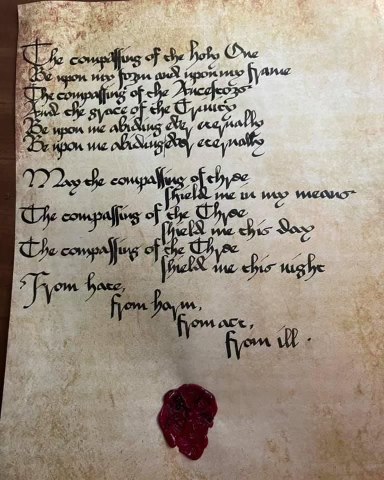 The compassing of the holy One
Be upon my form and upon my frame
The compassing of the Ancestors
And the grace of the Trinity
Be upon me abiding ever eternally
Be upon me abiding ever eternally
May the compassing of three
shield me in my means
The compassing of the Three
shield me this day
The compassing of the Three
shield me this night
From hate,
from harm,
from act,
from ill.